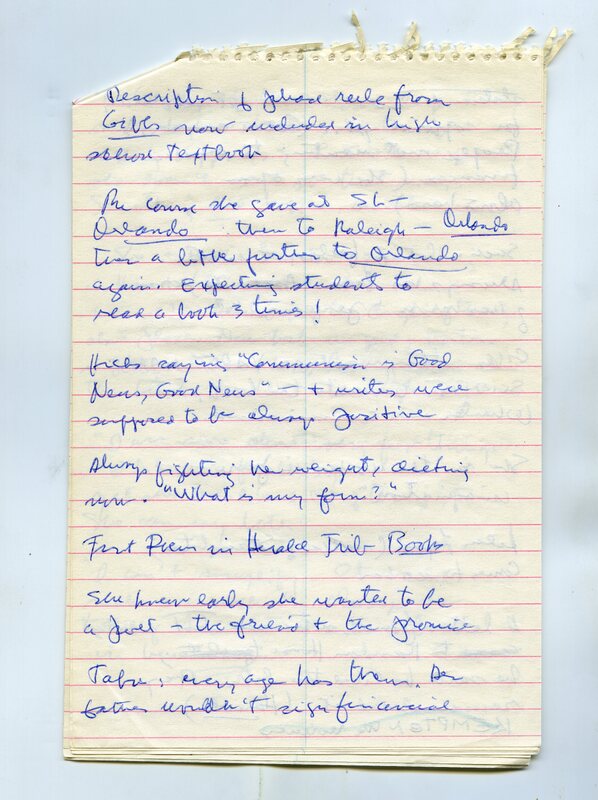 Description of phase rule from
Gibbs now included in high
school textbook
The course she gave at SL –
Orlando then to Raleigh – Orlando
then a little further to Orlando
again. Expecting students to
read a book 3 times!
Hicks saying "Communism is Good
News, Good News" – + writers were
supposed to be always positive
Always fighting her weight, dieting
now. "What is my form?"
First Poem in Herald Trib Books
She knew early she wanted to be
a poet – the friend + the promise
Tabu: every age has them. Her
father wouldn't sign financial